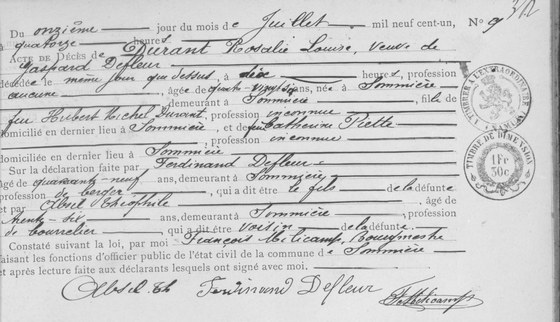 Du onzième jour du mois de Juillet mil neuf cent-un, N° 9
à quatorze heures
ACTE DE DÉCÈS de Durant Rosalie Louise, veuve de
Gaspard Defleur
décédée le même jour que dessus, à dix heures, profession
aucune, âgée de quatre-vingt ans, née à Sommière
demeurant à Sommière, fille de
feu Hubert Michel Durant, profession inconnue
domicilié en dernier lieu à Sommière, et de feue Catherine Piette
profession inconnue
domiciliée en dernier lieu à Sommière
Sur la déclaration faite par Ferdinand Defleur
âgé de quarante-neuf ans, demeurant à Sommière
profession de berger, qui a dit être le fils de la défunte
et par Absil Théophile, âgé de
trente-six ans, demeurant à Sommière, profession
de bourrelier qui a dit être voisin de la défunte.
Constaté suivant la loi, par moi François Melicamp, Bourgmestre
faisant les fonctions d'officier public de l'état civil de la commune de Sommière
et après lecture faite aux déclarants lesquels ont signé avec moi.
Absil Th Ferdinand Defleur
F Melicamp
TIMBRE DE DIMENSION
1 Fr
50c